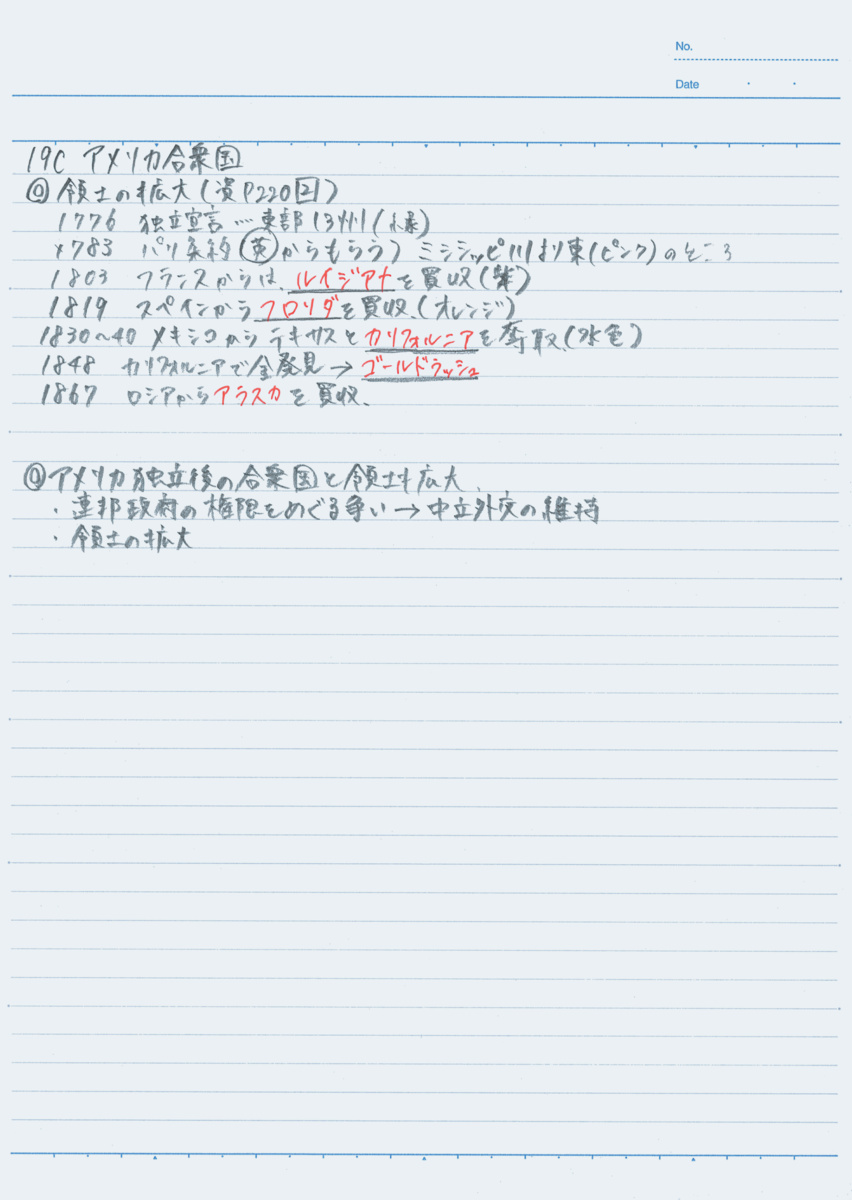 No.
Date
19C アメリカ合衆国
◎ 領土の拡大(資P220 2)
1776 独立宣言 … 東部13州(緑)
1783 パリ条約(英からもらう) ミシシッピ川より東(ピンク)のところ
1803 フランスからは、ルイジアナを買収(紫)
1819 スペインからフロリダを買収(オレンジ)
1830〜40 メキシコからテキサスとカリフォルニアを奪取(水色)
1848 カリフォルニアで金発見→ゴールドラッシュ
1867 ロシアからアラスカを買収、
◎アメリカ独立後の合衆国と領土拡大
・連邦政府の権限をめぐる争い→中立外交の維持
・領土の拡大